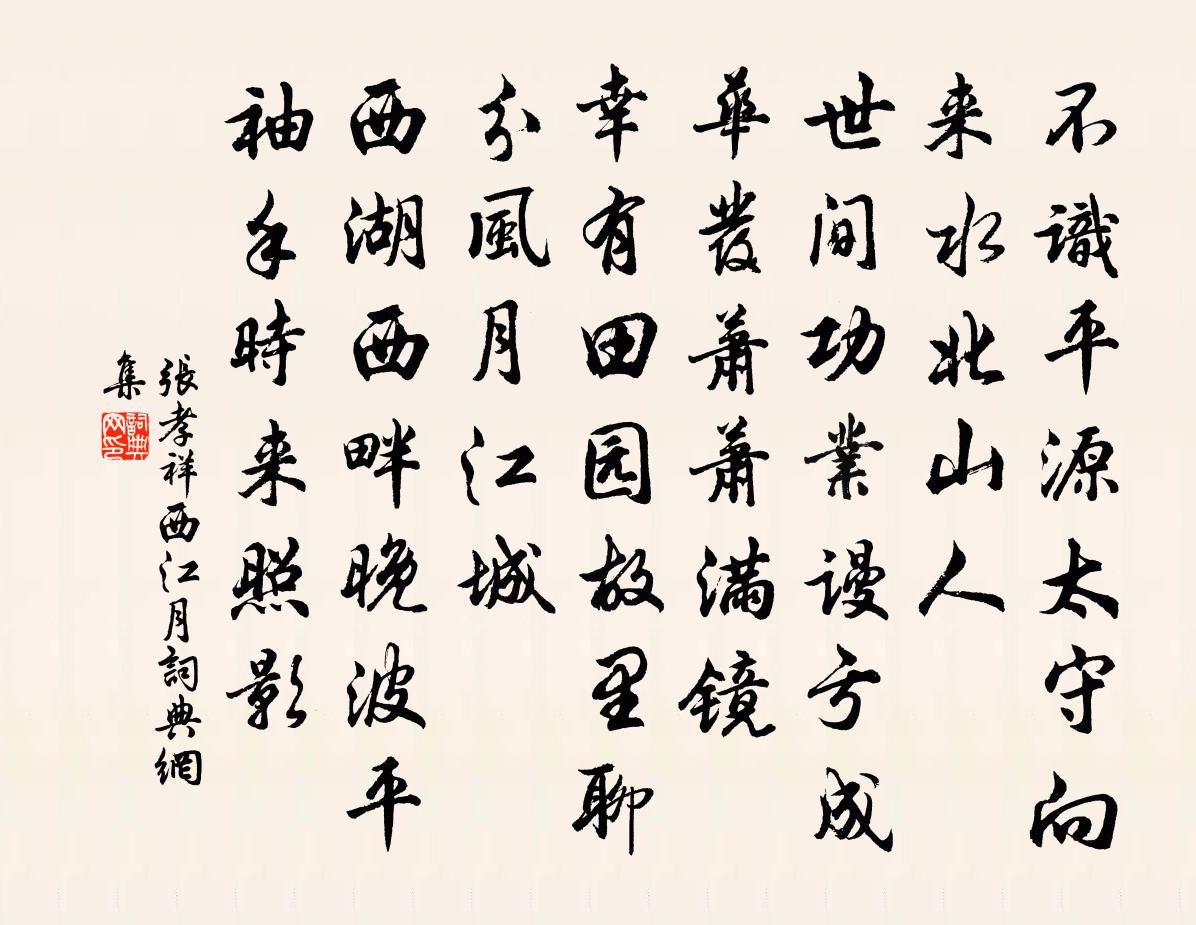 不識平源太守向
来水北山人
世间功業谩亏成
華發萧萧满镜
幸有田园故里聊
分風月江城
西湖西畔晚波平
袖手時来照影
張孝祥西江月詞典網
集
詞典网印